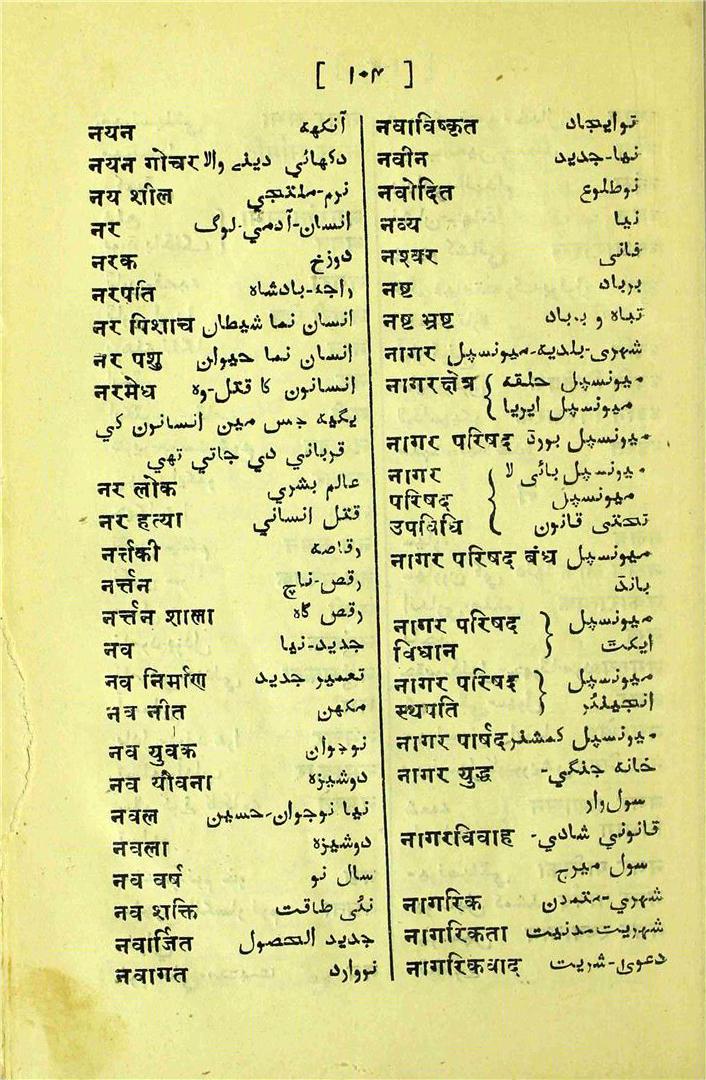 [ ۱۰۴ ]
नयन آنکھہ
नयन गोचर دکھائي دینے والا
नय शील نرم-ملتجي
नर انسان-آدمي-لوگ
नरक دوزخ
नरपति راجہ-بادشاہ
नर पिशाच انسان نما شیطان
नर पशु انسان نما حیوان
नरमेध انسانون کا قتل-وہ
یگیہ جس مین انسانون کي
قرباني دي جاتي تھي
नर लोक عالم بشري
नर हत्या قتل انساني
नर्त्तकी رقاصہ
नर्त्तन رقص-ناچ
नर्त्तन शाला رقص گاہ
नव جدید-نیا
नव निर्माण تعمیر جدید
नव नीत مکھن
नव युवक نوجوان
नव यौवना دوشیزہ
नवल نیا نوجوان-حسین
नवला دوشیزہ
नव वर्ष سال نو
नव शक्ति نئی طاقت
नवार्जित جدید الحصول
नवागत نووارد
नवाविष्कृत نوایجاد
नवीन نیا-جدید
नवोदित نوطلوع
नव्य نیا
नश्वर فانی
नष्ट برباد
नष्ट भ्रष्ट تباہ و برباد
नागर شہری-بلدیہ-میونسپل
नागरक्षेत्र میونسپل حلقہ
میونسپل ایریا
नागर परिषद میونسپل بورڈ
नागर میونسپل بائی لا
परिषद میونسپل
उपविधि تحتی قانون
नागर परिषद बंध میونسپل
بانڈ
नागर परिषद میونسپل
विधान ایکٹ
नागर परिषद میونسپل
स्थपति انجینئر
नागर पार्षद میونسپل کمشنر
नागर युद्ध خانہ جنگي-
سول وار
नागरविवाह قانوني شادي-
سول میرج
नागरिक شہري-متمدن
नागरिकता شہریت مدنیت
नागरिकवाद دعوی-شہریت